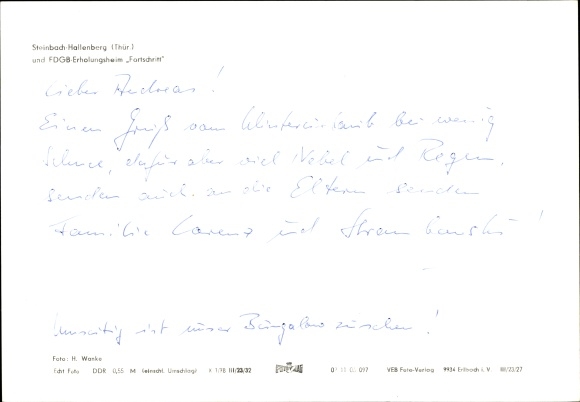 Steinbach-Hallenberg (Thür.)
und FDGB-Erholungsheim „Fortschritt"
Lieber Andreas!
Einen Gruß vom Winterurlaub bei wenig
Schnee, dafür aber viel Nebel und Regen,
senden auch an die Eltern senden
Familie Lorenz und
Umseitig ist unser Bungalow zu sehen!
Foto: H. Wanke
Echt Foto DDR 0,55 M (einschl. Umschlag) K 1/78 III/23/32
VEB Foto-Verlag 9934 Erlbach i. V. III/23/27